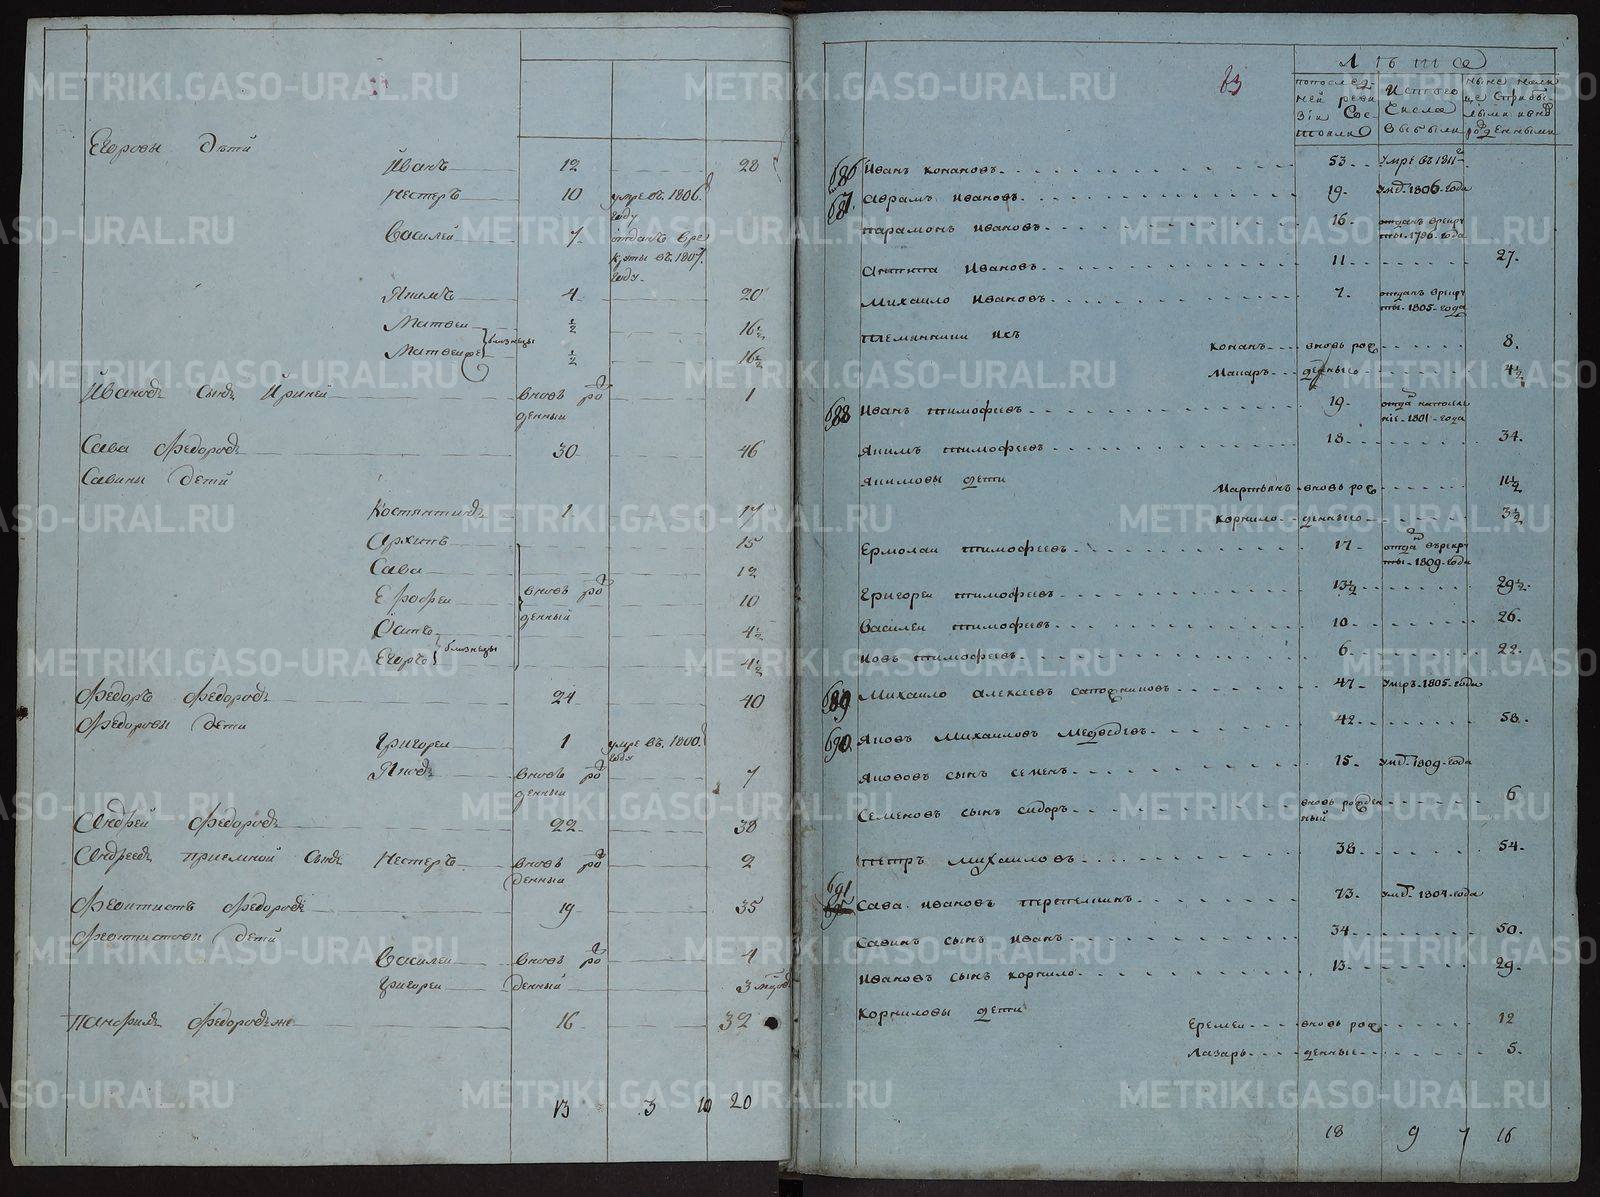 Егоровы дѣти
Иванъ 12 28
Нестеръ 10 умре въ 1806
году
Василей 7 отданъ вре
круты въ 1807
году
Якимъ 4 20
Матвеи ½ 16½
близнецы
Матвеи же ½ 16½
Ивановъ сынъ Ириней вновь ро 1
денный
Сава Федоровъ 30 46
Савины дети
Костянтинъ 1 17
Архипъ 15
Сава 12
Ерофеи вновь ро 10
денный
Осипъ 4½
близнецы
Егоръ 4½
Федоръ Федоровъ 24 40
Федоровы дети
Григореи 1 умре въ 1800
году
Яковъ вновь ро 7
денный
Андрей Федоровъ 22 38
Андреевъ приемной сынъ Нестеръ вновь ро 2
денный
Феоктистъ Федоровъ 19 35
Феоктистовы дети
Василеи вновь ро 4
Григореи денный 3
Панфилъ Федоровъ же 16 32
13 3 10 20
83
Лѣта
попослед
ней реви
зіи сос
тояло
изтого
числа
выбыли
ныне нали
це сприбы
лыми и вно
рожденными
686 Иванъ Конановъ 53 умре въ 1811
687 Аврамъ Ивановъ 19 умр. 1806 года
Парамонъ Ивановъ 16 отданъ врекру
ты 1796 года
Антипа Ивановъ 11 27
Михайло Ивановъ 7 отданъ врекру
ты 1805 года
Племянники ихъ
Конанъ вновь рож 8
Макаръ денныe 4½
688 Иванъ Тимофеевъ 19 отда напоселе
ніе 1801 года
Якимъ Тимофеевъ 18 34
Якимовы дети
Мартынъ вновь рож 11½
Корнило денные 3½
Ермолаи Тимофеевъ 17 отда върекру
ты 1809 года
Григореи Тимофеевъ 13½ 29½
Василеи Тимофеевъ 10 26
Иовъ Тимофеевъ 6 22
689 Михайло Алексеевъ Сапожниковъ 47 умръ 1805 года
690 Яковъ Михаиловъ Медведевъ 42 58
Якововъ сынъ Семенъ 15 умр. 1809 года
Семеновъ сынъ Сидоръ вновь рожден 6
ный
Петръ Михаиловъ 38 54
691 Сава Ивановъ Перепелкинъ 73 умр. 1804 года
Савинъ сынъ Иванъ 34 50
Ивановъ сынъ Корнило 13 29
Корниловы дети
Еремеи вновь рож 12
Лазарь денные 5
18 9 7 16
METRIKI.GASO-URAL.RU